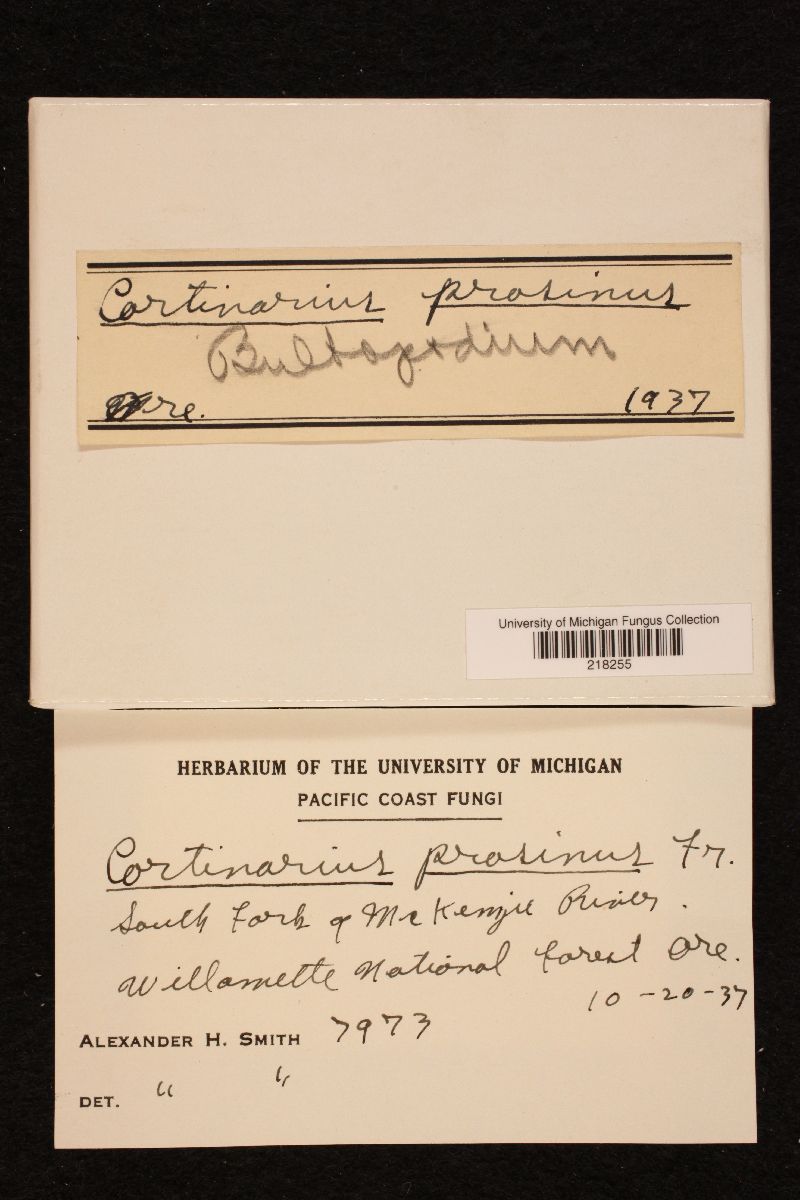 Cortinarius prasinus
Bulbopodium
Ore. 1937
University of Michigan Fungus Collection
218255
HERBARIUM OF THE UNIVERSITY OF MICHIGAN
PACIFIC COAST FUNGI
Cortinarius prasinus Fr.
South Fork of McKenzie River.
Willamette National Forest Ore.
10-20-37
ALEXANDER H. SMITH 7973
DET. " "